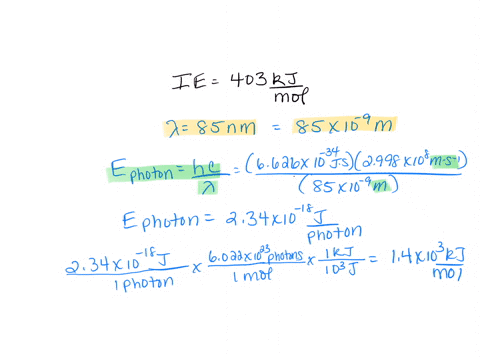 IE = 403 kJ/mol
λ = 85 nm = 85 x 10⁻⁹ m
E photon = hc/λ = (6.626 x 10⁻³⁴ J·s)(2.998 x 10⁸ m·s⁻¹)/(85 x 10⁻⁹ m)
E photon = 2.34 x 10⁻¹⁸ J/photon
2.34 x 10⁻¹⁸ J/1 photon x 6.022 x 10²³ photons/1 mol x 1 kJ/10³ J = 1.4 x 10³ kJ/mol